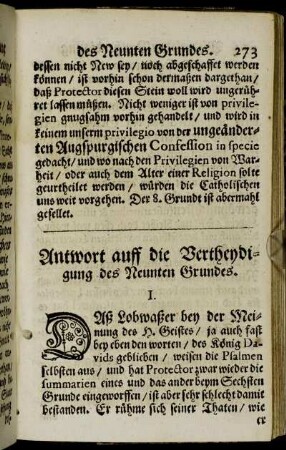 des Neunten Grundes. 273
dessen nicht New sey / noch abgeschaffet werden
können / ist vorhin schon dermaßen dargethan /
daß Protector diesen Stein woll wird ungerüh-
ret lassen müßen. Nicht weniger ist von privile-
gien gnugsahm vorhin gehandelt / und wird in
keinem unserm privilegio von der ungeänder-
ten Augspurgischen Confession in specie
gedacht / und wo nach den Privilegien von War-
heit / oder auch dem Alter einer Religion solte
geurtheilet werden / würden die Catholischen
uns weit vorgehen. Der 8. Grundt ist abermahl
gefellet.
Antwort auff die Vertheydi-
gung des Neunten Grundes.
I.
DAß Lobwaßer bey der Mei-
nung des H. Geistes / ja auch fast
bey eben den worten / des König Da-
vids geblieben / weisen die Psalmen
selbsten aus / und hat Protector zwar wieder die
summarien eines und das ander beym Sechsten
Grunde eingeworffen / ist aber sehr schlecht damit
bestanden. Er rühme sich seiner Thaten / wie
er